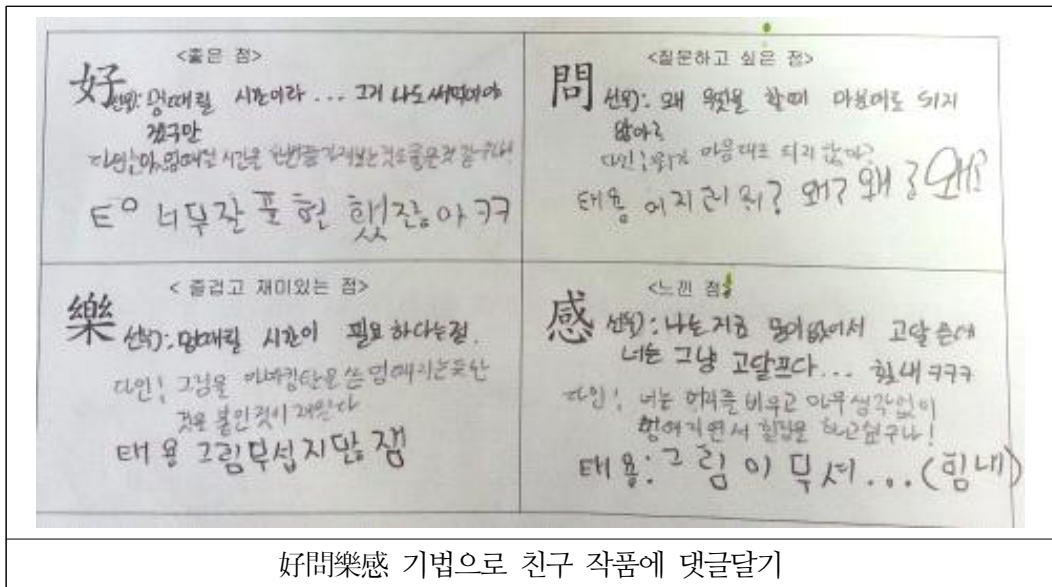 <좋은 점>
好 선욱: 멍때릴 시간이라... 그거 나도 써먹어야
겠구만
다인: 멍때릴 시간은 한번쯤 가져보는것도 좋은것 같구나!
태용 너무 잘 표현 했잖아 ㅋㅋ
<질문하고 싶은 점>
問 선욱: 왜 무엇을 할때 마음대로 되지
않아?
다인: 뭐가 마음대로 되지 않아?
태용 어지러워? 왜? 왜? 왜?
<즐겁고 재미있는 점>
樂 선욱: 멍때릴 시간이 필요하다는점.
다인: 그림을 쓴 멍때리는듯한
것을 붙인것이 재밌다
태용 그림무섭지만잼
<느낀 점>
感 선욱: 나는 지금 멍이없어서 고달픈데
너는 그냥 고달프다... 힘내 ㅋㅋㅋ
다인: 너는 머리를 비우고 아무생각없이
멍때리면서 힐링을 하고싶구나!
태용: 그림이 무셔...(힘내)
好問樂感 기법으로 친구 작품에 댓글달기